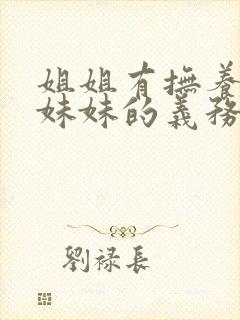 姐姐有撫養
妹妹的義務
劉祿長